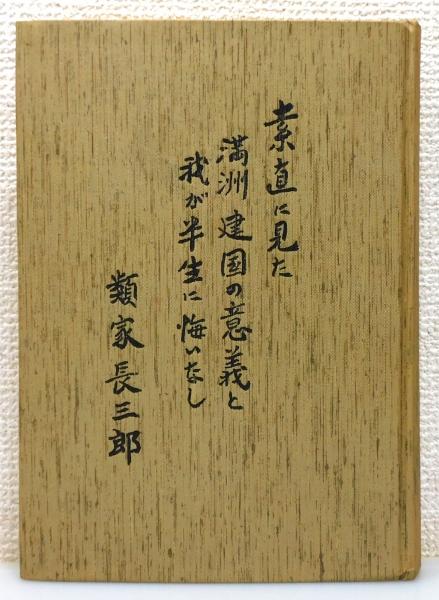 素直に見た
満洲建国の意義と
我が半生に悔いなし
類家長三郎